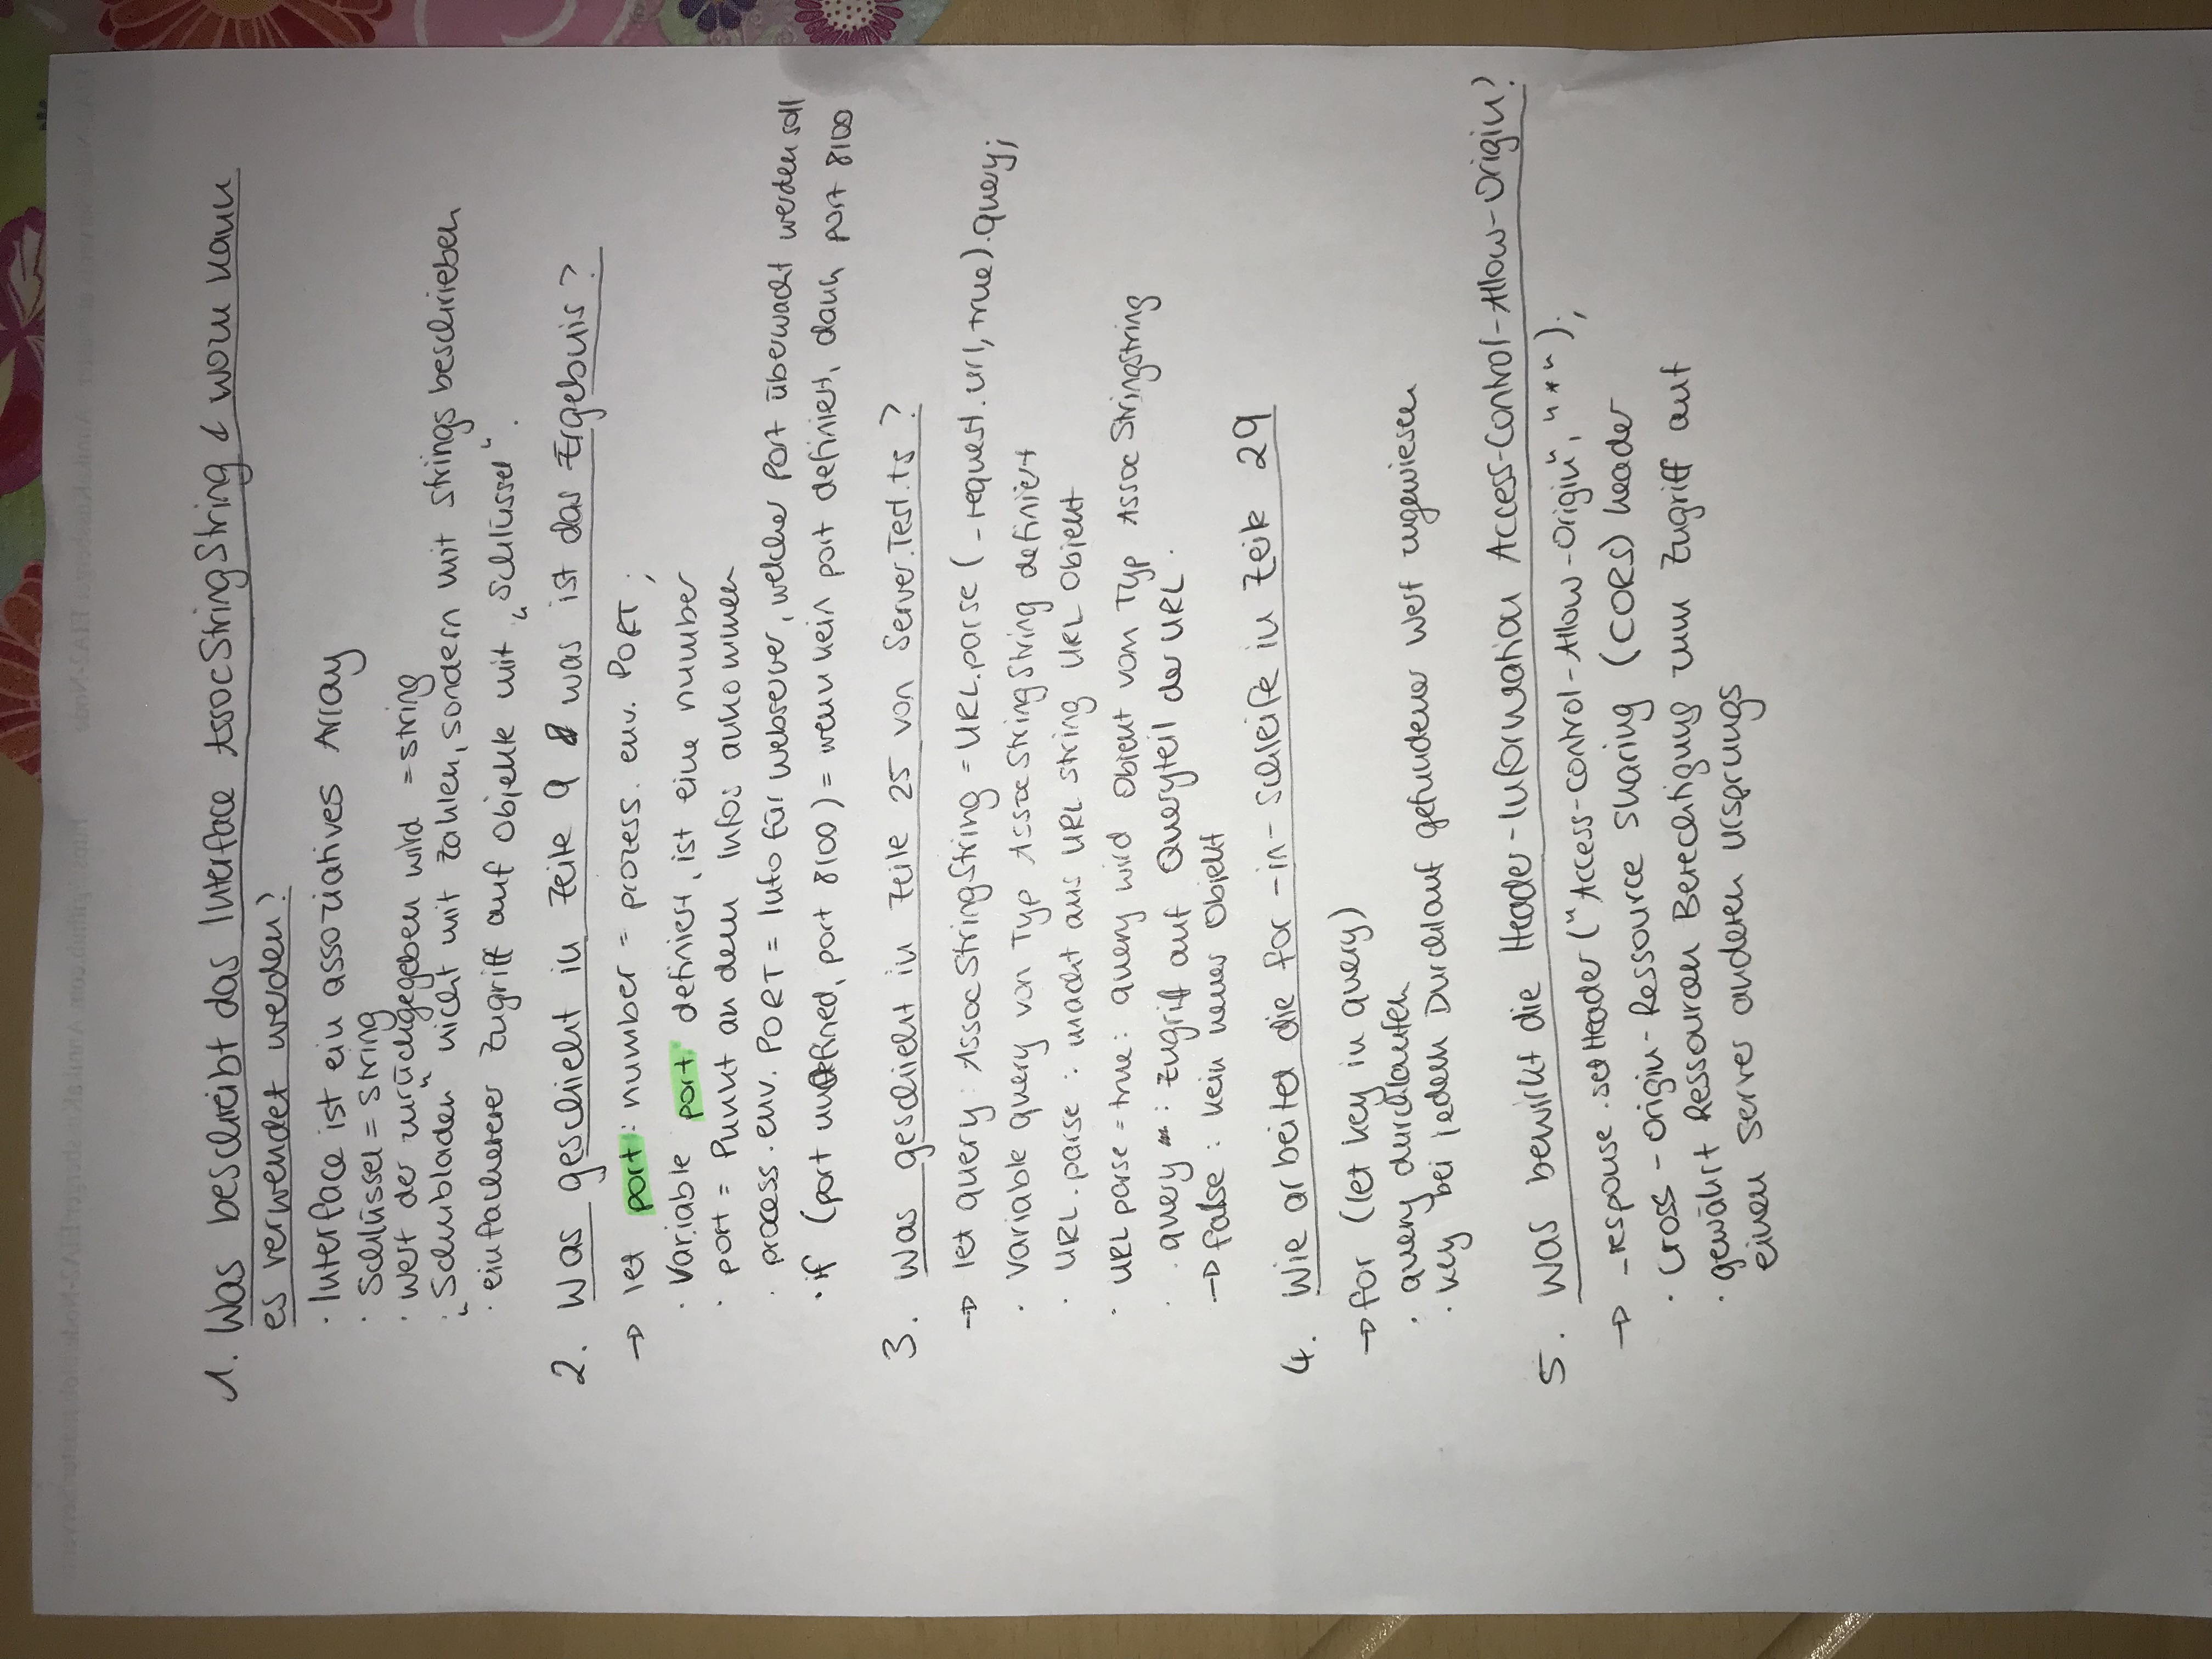 1. Was beschreibt das Interface AssocStringString & wozu kann
es verwendet werden?
· Interface ist ein assoziatives Array
· Schlüssel = string
· Wert der zurückgegeben wird = string
· „Schubladen“ nicht mit Zahlen, sondern mit strings beschrieben
· einfachererer Zugriff auf Objekte mit „Schlüssel“.
2. Was geschieht in Zeile 9 & was ist das Ergebnis?
→ let port: number = prozess. env. PORT ;
· Variable port definiert, ist eine number
· port = Punkt an dem Infos ankommen
· process. env. PORT = Info für Webserver, welcher Port überwacht werden soll
· if (port undefined, port 8100) = wenn kein port definiert, dann port 8100
3. Was geschieht in Zeile 25 von Server.Test.ts ?
→ let query: AssocStringString = URL.parse (_request.url, true).query;
· Variable query von Typ AssocStringString definiert
· URL.parse : macht aus URL string URL Objekt
· URL parse = true: query wird Objekt vom Typ AssocStringString
· .query : Zugriff auf Queryteil der URL.
→ false : kein neues Objekt
4. Wie arbeitet die for-in-Schleife in Zeile 29
→ for (let key in query)
· query durchlaufen
· key bei jedem Durchlauf gefundener Wert zugewiesen
5. Was bewirkt die Header-Information Access-Control-Allow-Origin?
→ _response.setHeader ("Access-Control-Allow-Origin", "*");
· Cross-Origin-Ressource Sharing (CORS) header
· gewährt Ressourcen Berechtigung zum Zugriff auf
einen Server anderen Ursprungs